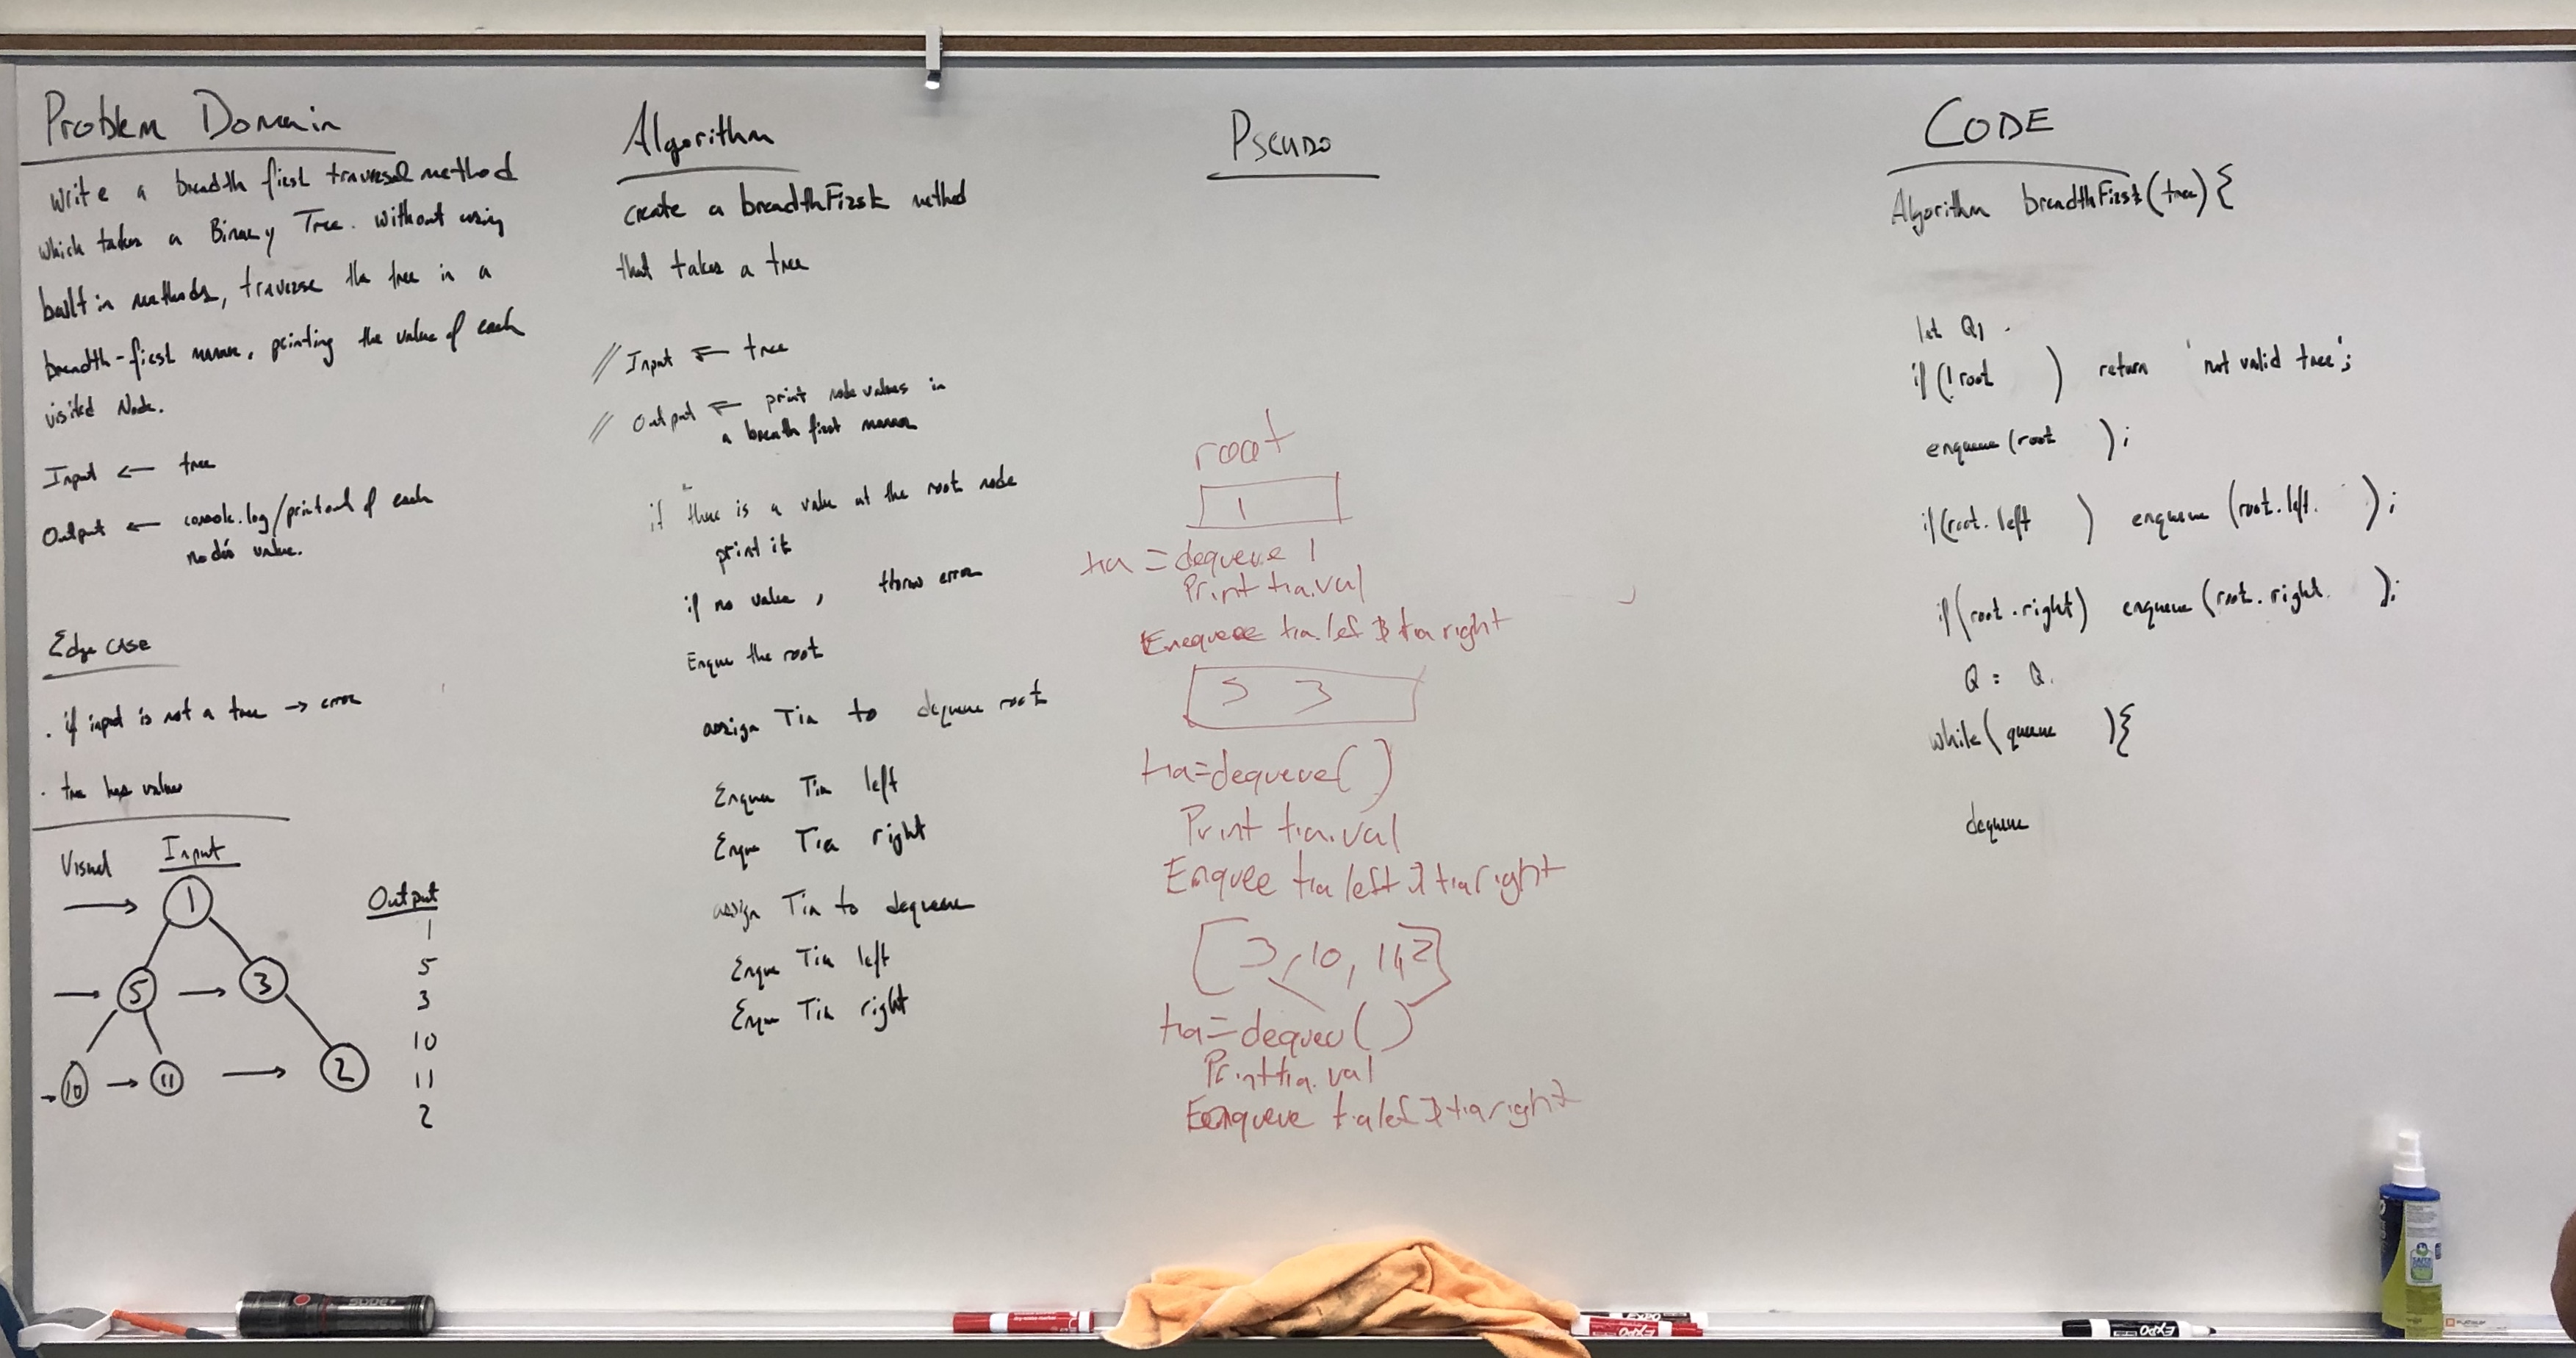 Problem Domain
Write a breadth first traversal method
which takes a Binary Tree. Without using
built in methods, traverse the tree in a
breadth-first manner, printing the value of each
visited Node.
Input ← tree
Output ← console.log/printout of each
node's value.
Edge case
. if input is not a tree → error
. tree has values
Visual Input
1
5 3
10 11 2
Output
1
5
3
10
11
2
Algorithm
create a breadthFirst method
that takes a tree
// Input ← tree
// Output ← print node values in
a breath first manner
if there is a value at the root node
print it
if no value, throw error
Enque the root
assign Tia to dequeue root
Enque Tia left
Enque Tia right
assign Tia to dequeue
Enque Tia left
Enque Tia right
Pseudo
root
1
tia = dequeue 1
Print tia.val
Enequeue tia.lef & tia right
5 3
tia=dequeue()
Print tia.val
Enquee tia left & tia right
[3, 10, 11, 2]
tia=dequeu()
Print tia.val
Eenqueue tia lef & tia right
CODE
Algorithm breadthFirst(tree){
let Q1
if(!root ) return 'not valid tree';
enqueue(root );
if(root.left ) enqueue (root.left. );
if(root.right) enqueue (root.right. );
Q = Q.
while(queue ){
dequeue
EXPO
EXPO